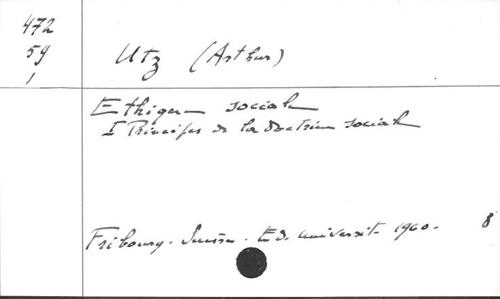 472
59
1
Utz (Arthur)
Ethique sociale
I Principes de la doctrine sociale
Fribourg. Suisse. Ed. universit. 1960. 8